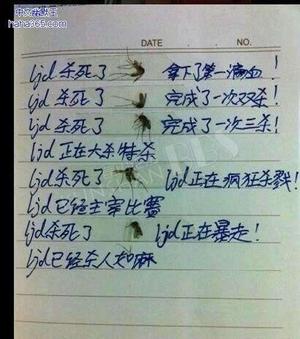 haha365.com
DATE NO.
ljd 杀死了 拿下了第一滴血！
ljd 杀死了 完成了一次双杀！
ljd 杀死了 完成了一次三杀！
ljd 正在大杀特杀
ljd 杀死了 ljd 正在疯狂杀戮！
ljd 已经主宰比赛
ljd 杀死了 ljd 正在暴走！
ljd 已经杀人如麻